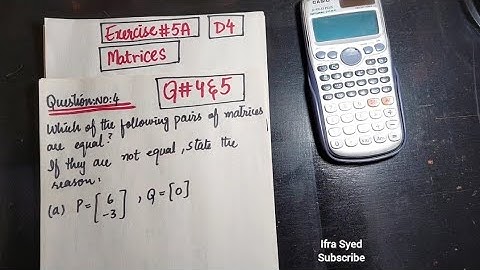 Exercise#5A
D4
Matrices
Q#4&5
Question:No:4
Which of the following pairs of matrices
are equal?
If they are not equal, state the
reason.
(a) P = [6 -3], Q = [0]
CASIO
Ifra Syed
Subscribe